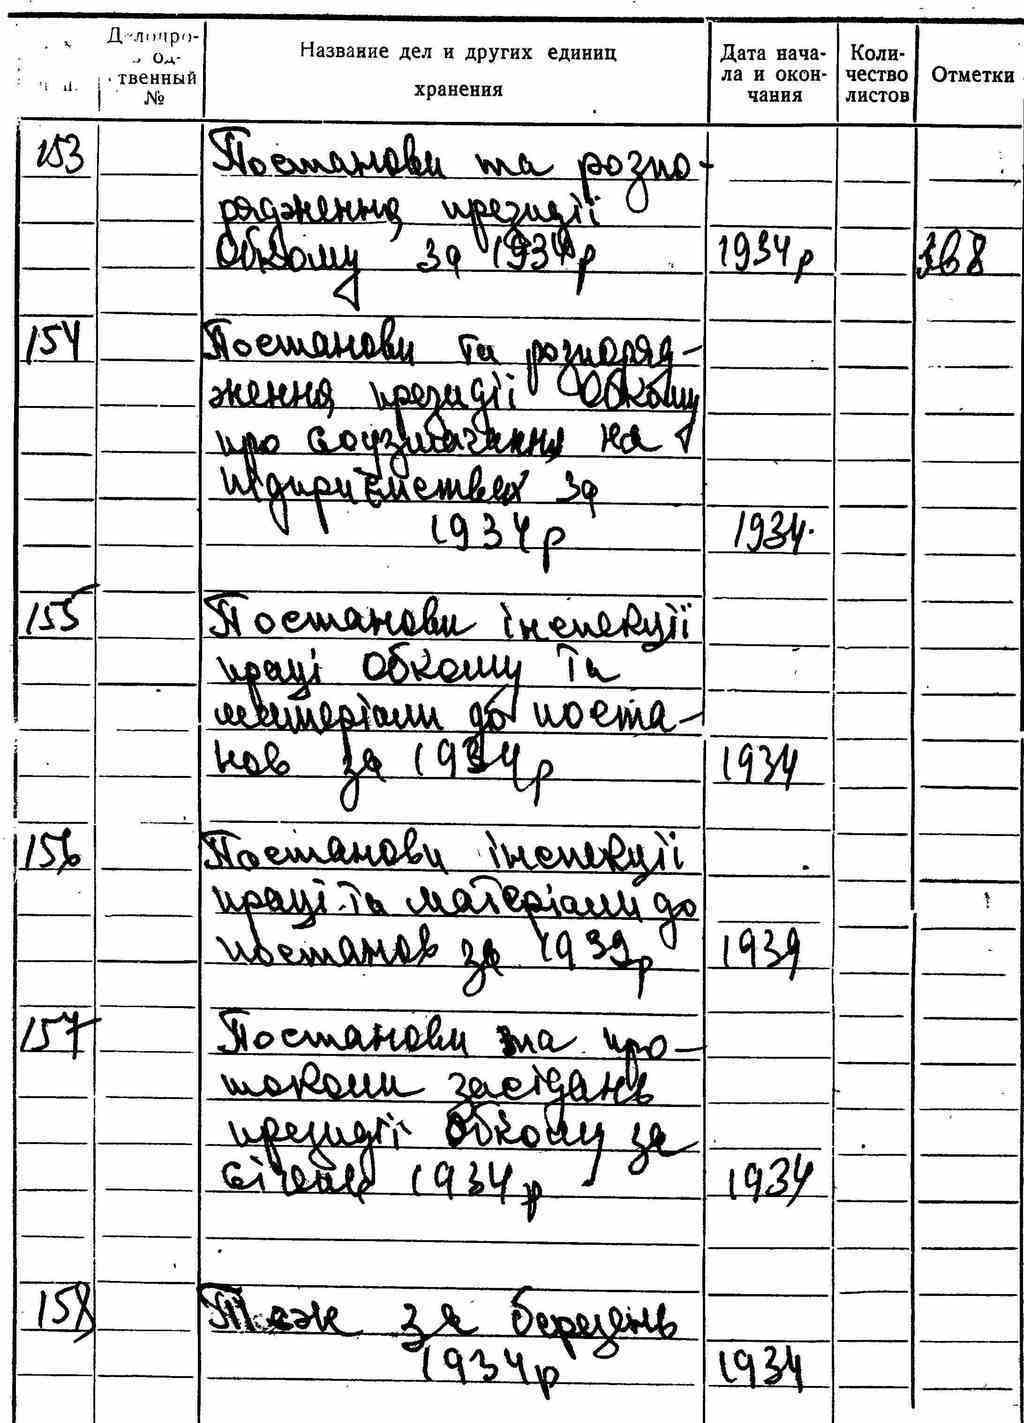 Делопро-
од-
ственный
№
Название дел и других единиц
хранения
Дата нача-
ла и окон-
чания
Коли-
чество
листов
Отметки
153 Постанови та розпо-
рядження президії
Обкому за 1934 р 1934 р
154 Постанови та розпоряд-
ження президії Обкому
про на
підприємствах за
1934 р 1934.
155 Постанови інспекції
праці Обкому та
матеріали до поста-
нов за 1934 р 1934
156 Постанови інспекції
праці та матеріали до
постанов за 1939 р 1939
157 Постанови та про-
токоли засідань
президії Обкому за
січень 1934 р 1934
158 Теж за березень
1934 р 1934